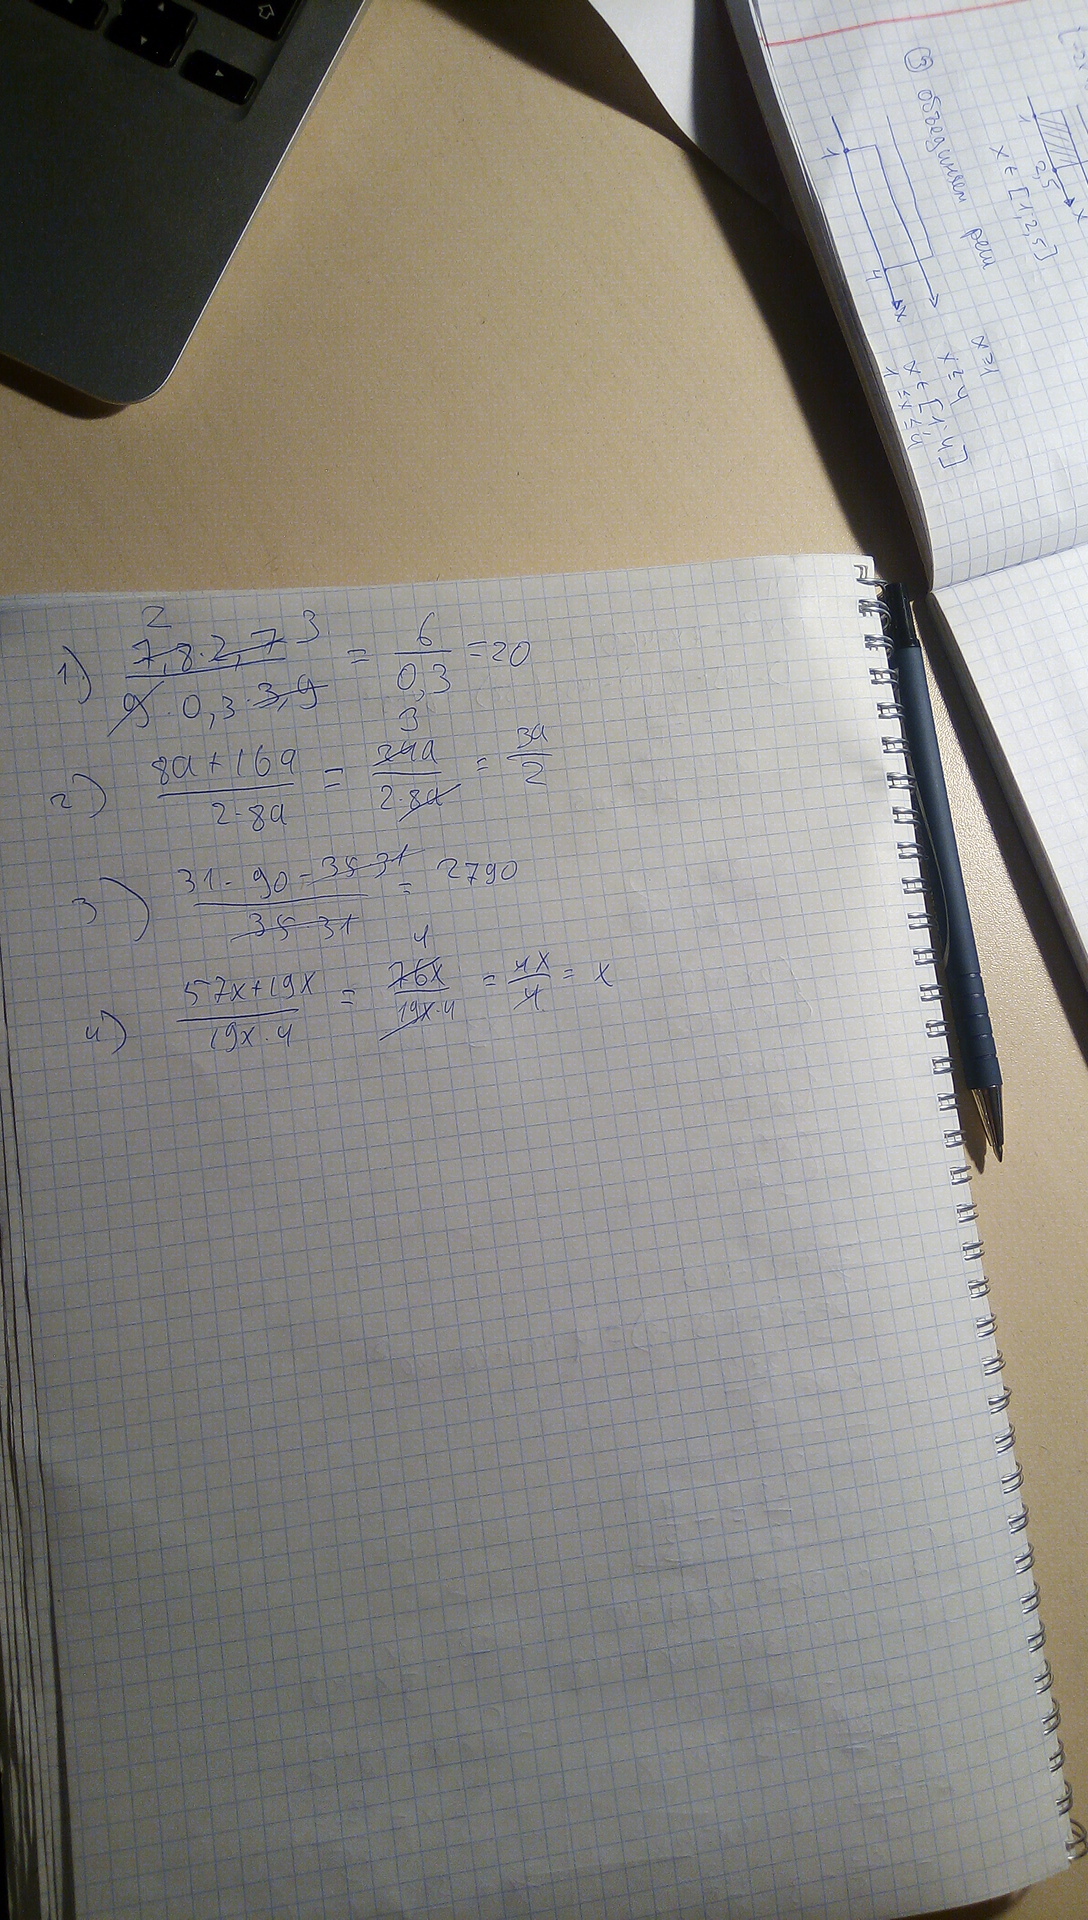 ③ объединяем реш
1 2,5 x
x ∈ [1; 2,5]
1 4 x
x ≥ 1
x ≥ 4
x ∈ [1; 4]
1 ≤ x ≤ 4
2
1) 7,8·2,7 3 / 9·0,3·3,9 = 6/0,3 = 20
3
2) 8a+16a / 2·8a = 24a / 2·8a = 3a/2
3) 31·90-35·31 / 35·31 = 2790
4
4) 57x+19x / 19x·4 = 76x / 19x·4 = 4x/4 = x